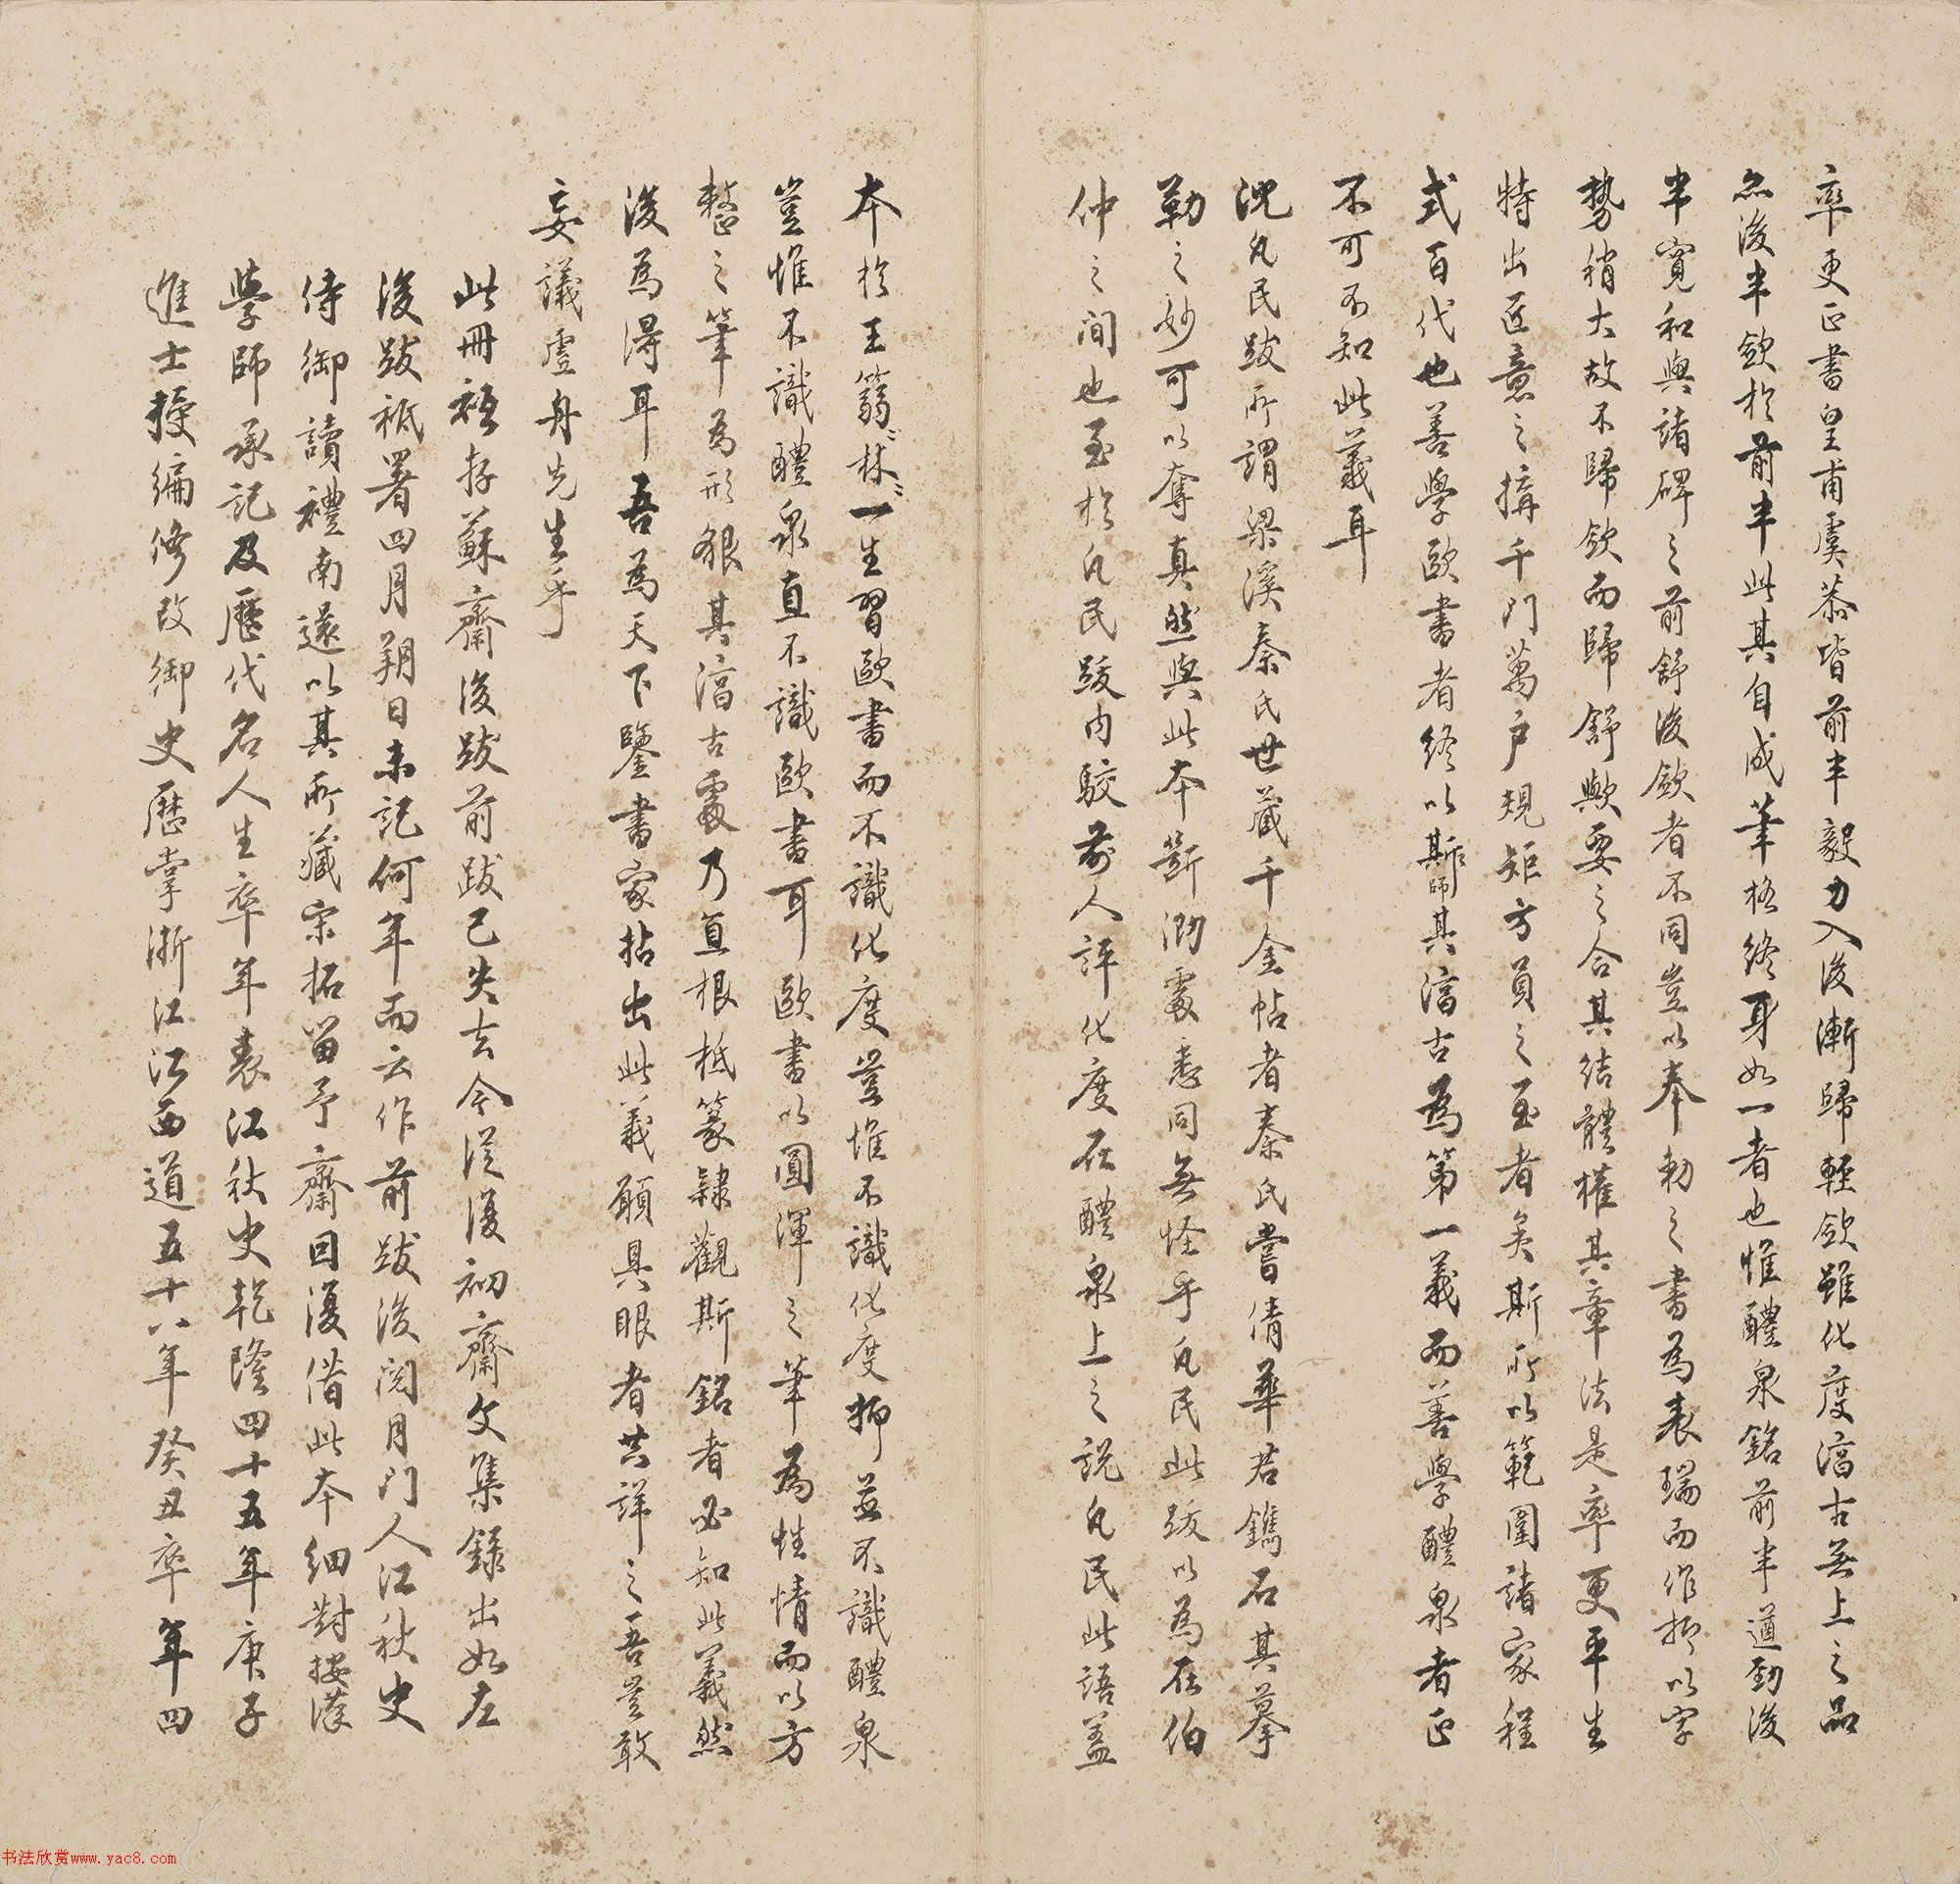 率更正書皇甫虞恭皆前半毅力入後漸歸輕斂雖化度淳古無上之品
亦後半斂於前半此其自成筆格終身如一者也惟醴泉銘前半遒勁後
半寬和與諸碑之前舒後斂者不同豈以奉勅之書為表瑞而作抑以字
勢稍大故不歸斂而歸舒歟要之合其結體權其章法是率更平生
特出匠意之搆千門萬戶規矩方員之至者矣斯所以範圍諸家程
式百代也善學歐書者終以斯師其淳古為第一義而善學醴泉者正
不可不知此義耳
況凡民跋所謂梁溪秦氏世藏千金帖者秦氏嘗倩華君鐫石其摹
勒之妙可以奪真然與此本斷泐處悉同無怪乎凡民此跋以為在伯
仲之間也至於凡民跋內駮前人評化度在醴泉上之說凡民此語蓋
本於王蒻林蒻林一生習歐書而不識化度豈惟不識化度抑並不識醴泉
豈惟不識醴泉直不識歐書耳歐書以圓渾之筆為性情而以方
整之筆為形貌其淳古處乃直根柢篆隸觀斯銘者必知此義然
後為得耳吾為天下鑒書家拈出此義願具眼者共詳之吾豈敢
妄議虛舟先生乎
此冊裱存蘇齋後跋前跋已失去今從復初齋文集錄出如左
後跋祗署四月朔日未記何年而云作前跋後閱月門人江秋史
侍御讀禮南還以其所藏宋拓留予齋因復借此本細對按漢
學師承記及歷代名人生卒年表江秋史乾隆四十五年庚子
進士授編修改御史歷掌浙江江西道五十八年癸丑卒年四
书法欣赏www.yac8.com